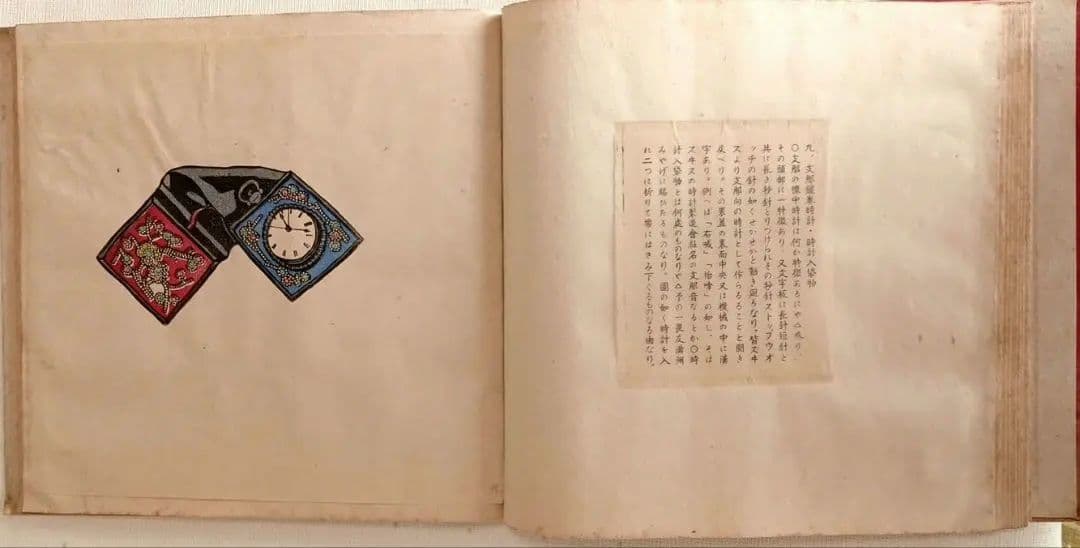 九、支那懷中時計・時計入袋物
〇支那の懷中時計は何か特徴あるにや△然り、
その頭部に一特徴あり 又文字板に長針短針と
共に長き秒針とりつけられその秒針ストップウオ
ッチの針の如くせかせかと動き廻るなり。皆スヰ
スより支那向の時計として作らるゝことと聞き
及べり。その裏蓋の裏面中央又は機械の中に漢
字あり。例へば「右喊」「怡喴」の如し、そは
スヰスの時計製造會社名の支那音なるとか〇時
計入袋物とは何處のものなりや△予の一畏友滿洲
みやげに賜びたるものなり。圖の如く時計を入
れ二つに折りて帶にはさみ下ぐるものなる由なり。